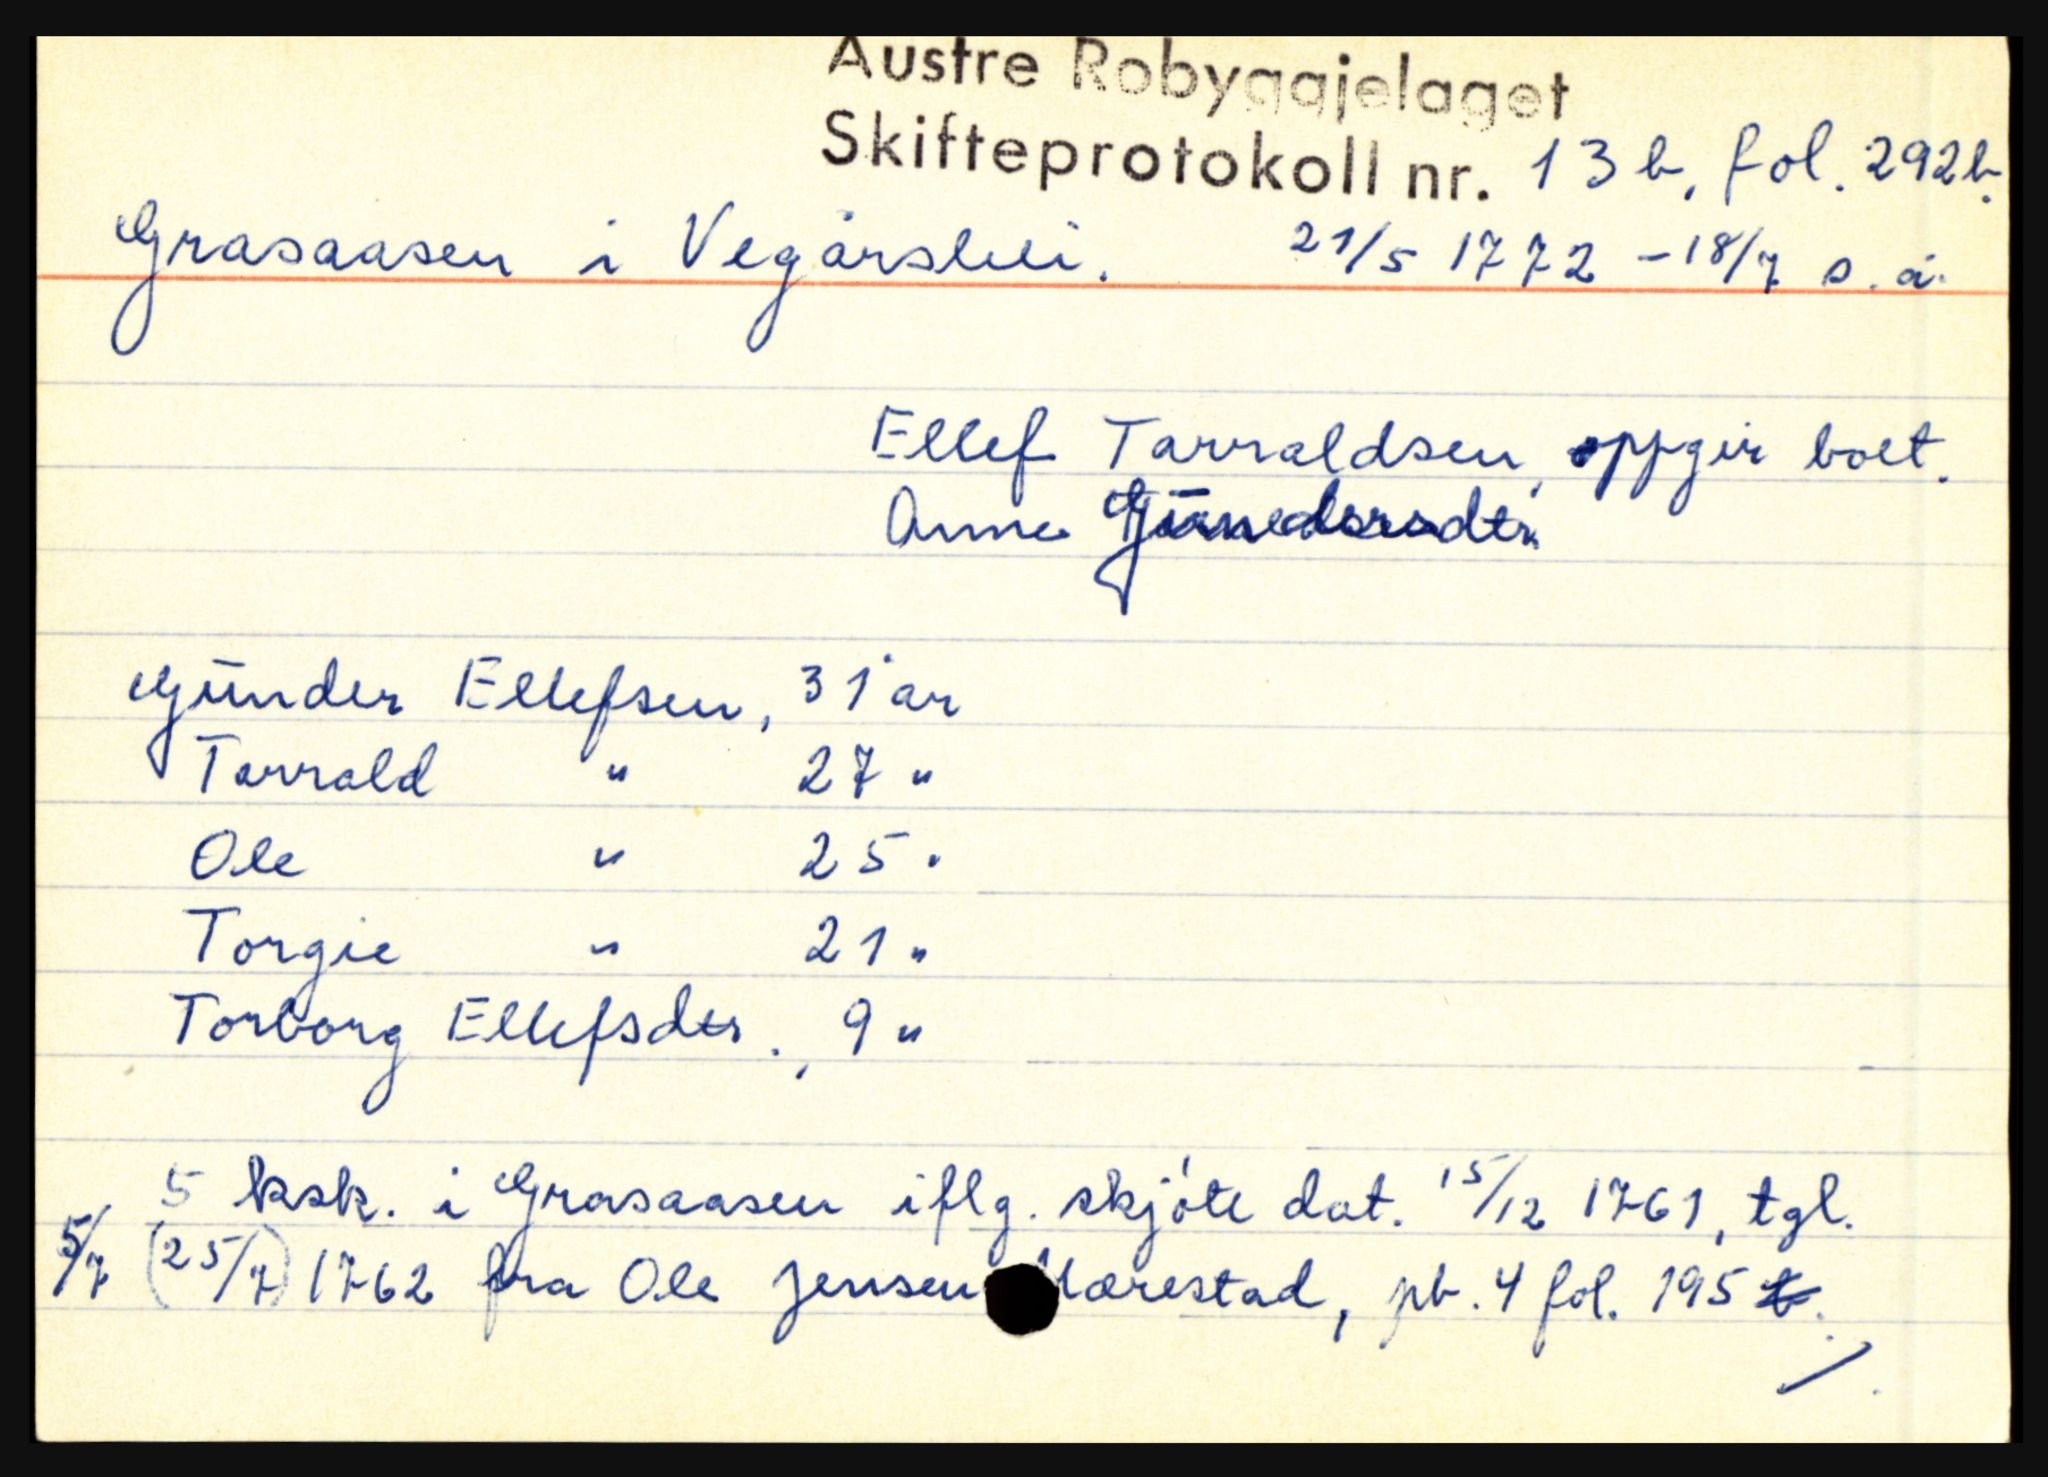 Austre Robyggjelaget
Skifteprotokoll nr. 13b, fol. 292b.
Grasaasen i Vegårshei. 21/5 1772 - 18/7 s. å.
Ellef Tarraldsen, oppgir boet.
Anne
Günder Ellefsen, 31 år
Tarrald " 27 "
Ole " 25 "
Torgie " 21 "
Torborg Ellefsdtr., 9 "
5 ksk. i Grasaasen iflg. skjöte dat. 15/12 1761, tgl.
5/7 (25/7) 1762 fra Ole Jensen Mærestad, pb. 4 fol. 195